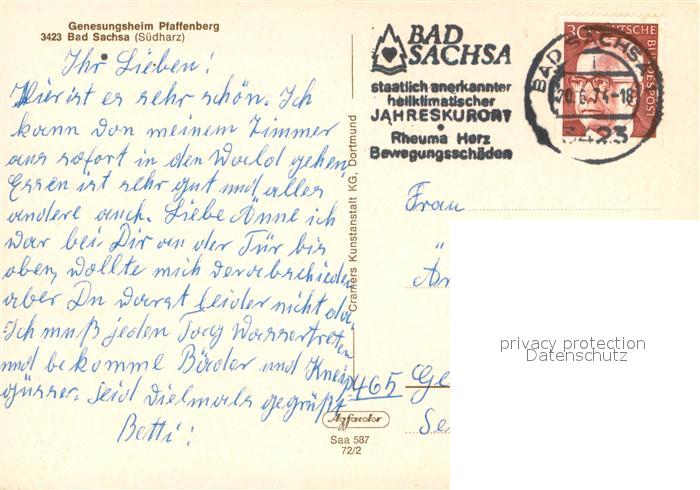 Genesungsheim Pfaffenberg
3423 Bad Sachsa (Südharz)
Ihr Lieben!
Hier ist es sehr schön. Ich
kann von meinem Zimmer
aus sofort in den Wald gehen
Essen ist sehr gut und alles
andere auch. Liebe Änne ich
war bei Dir an der Tür bis
oben, wollte mich verabschieden
aber Du warst leider nicht da.
Ich muß jeden Tag Wassertreten
und bekomme Bäder und Kneip
güsse. Seid vielmals gegrüßt
Betti!
Cramers Kunstanstalt KG, Dortmund
Agfacolor
Saa 587
72/2
BAD
SACHSA
staatlich anerkannter
heilklimatischer
JAHRESKURORT
Rheuma Herz
Bewegungsschäden
BAD SACHSA
20.6.74-18
3423
30
DEUTSCHE BUNDESPOST
Frau
465 Ge
privacy protection
Datenschutz